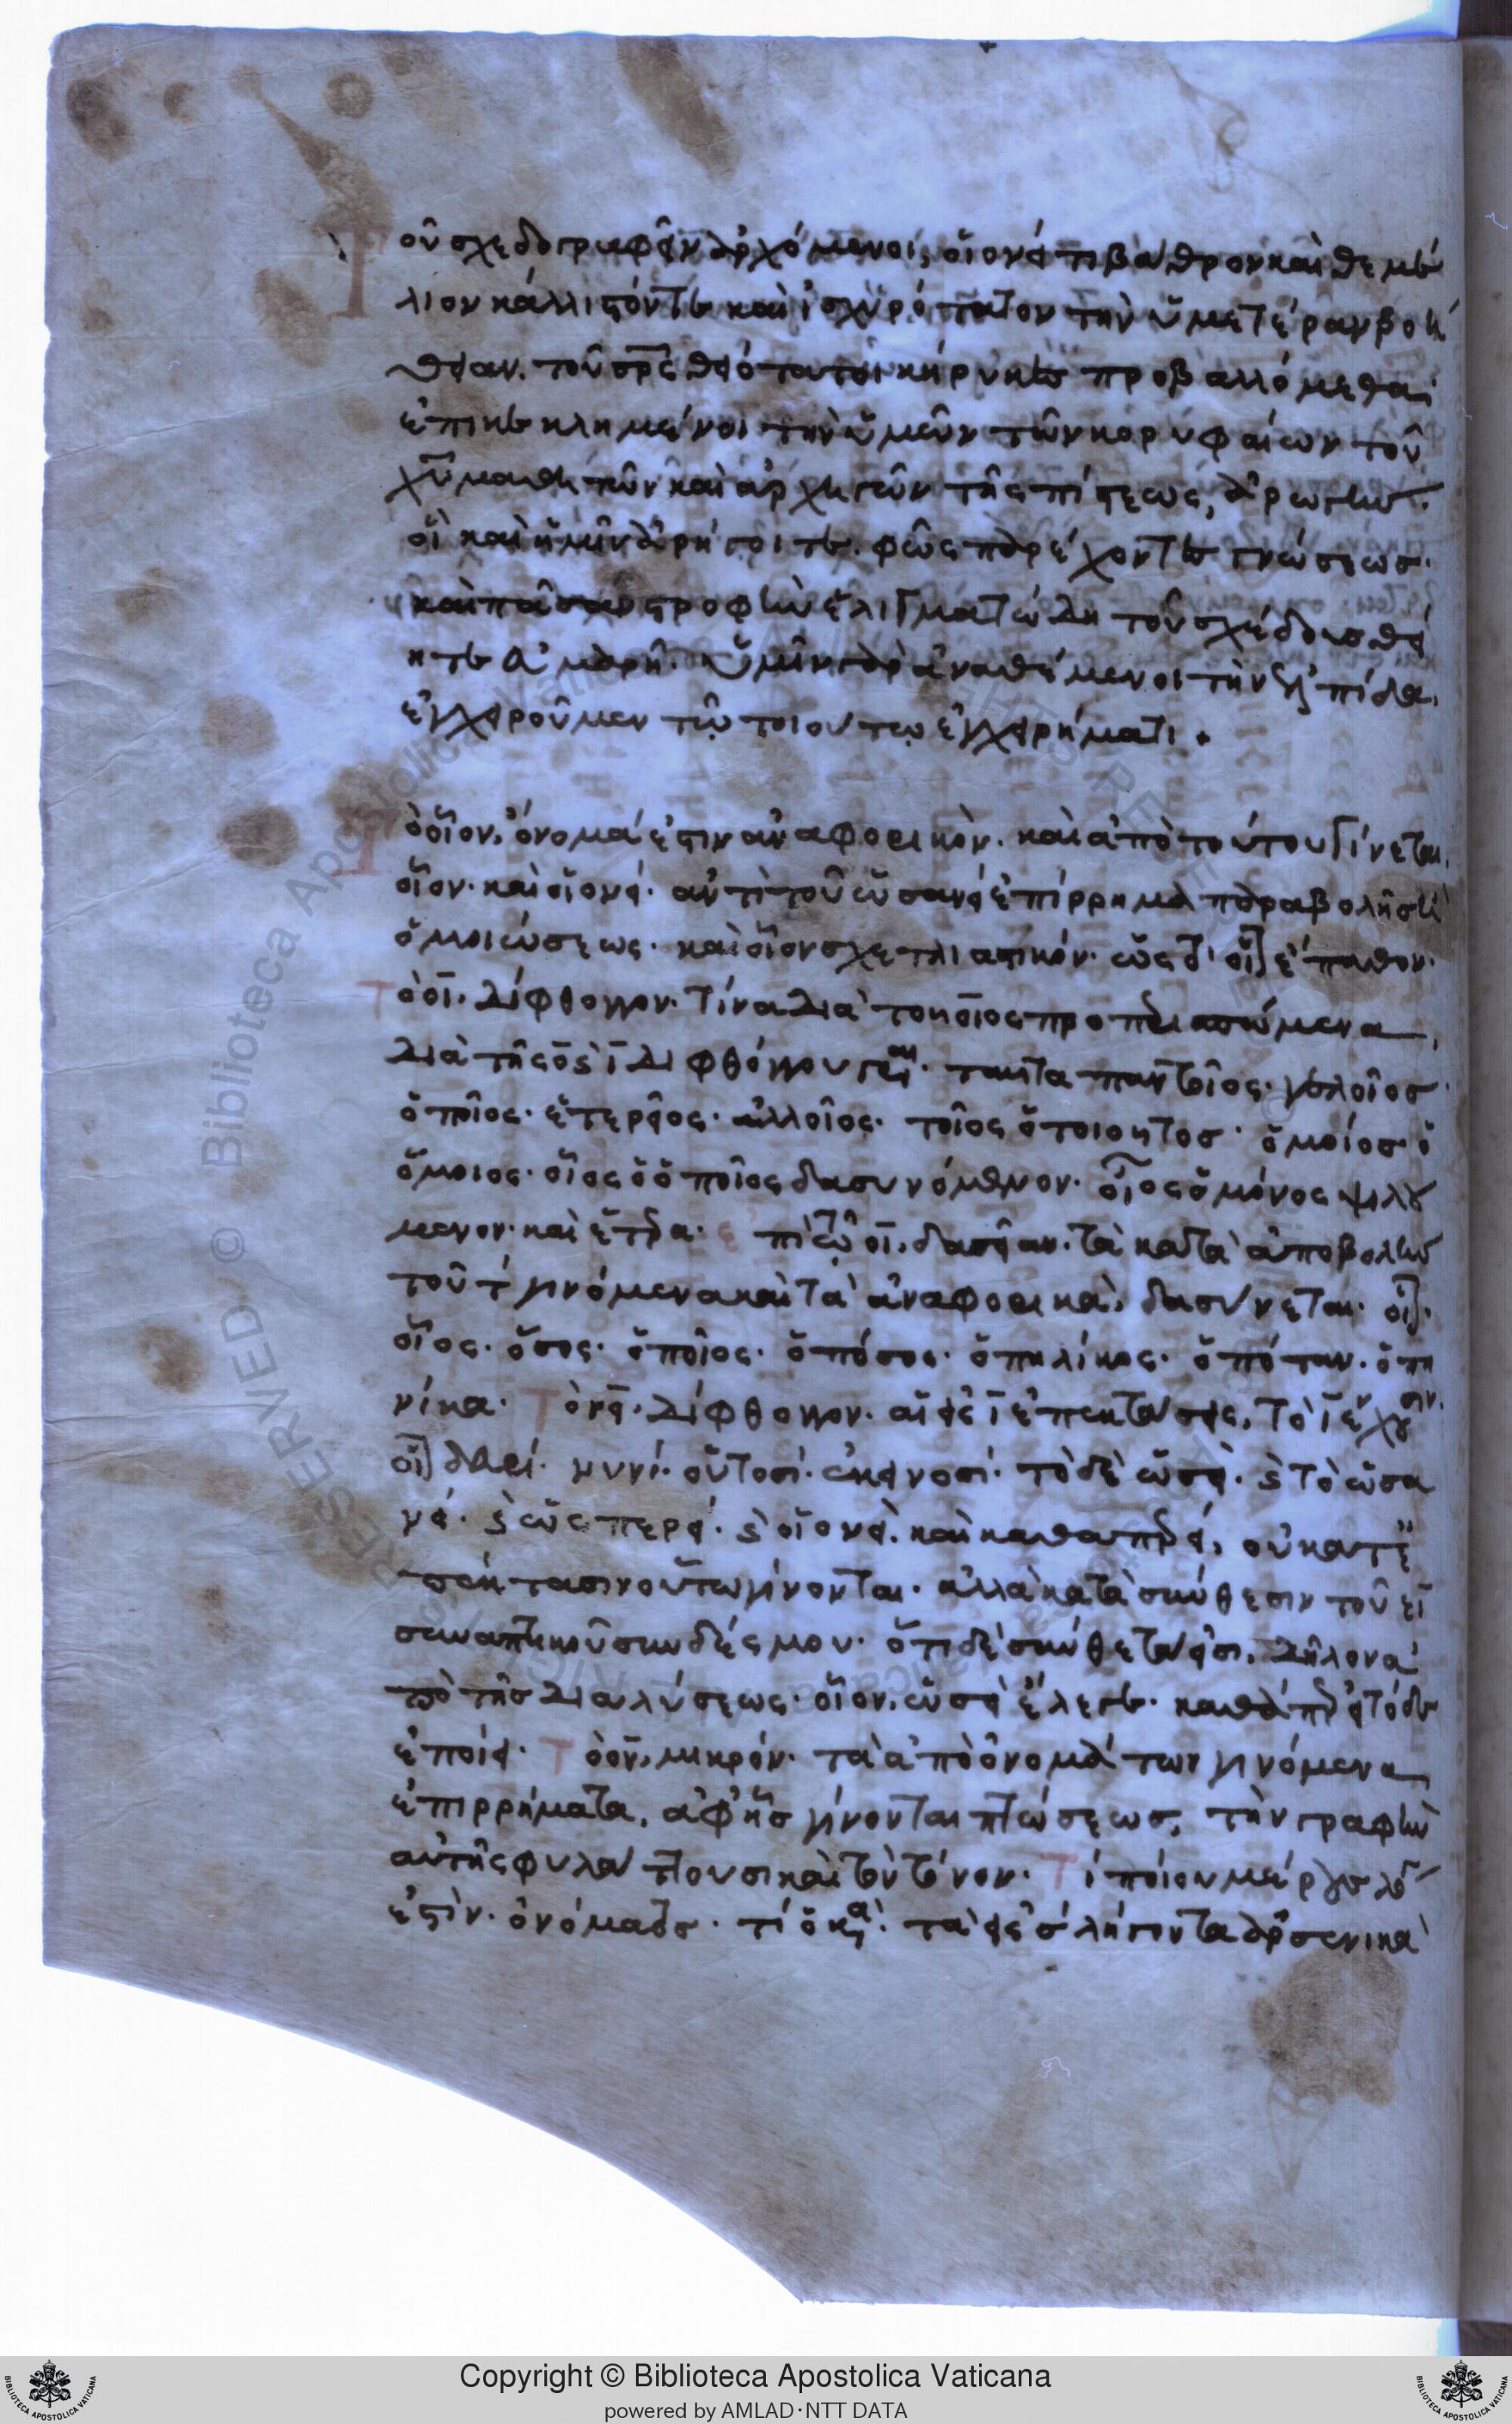 Τοῦ σχεδογραφεῖν ἀρχόμενοι, οἱονεί τι βάθρον καὶ θεμέ
λιον κάλλιστόν τε καὶ ἰσχυρότατον τὴν ὑμετέραν βοή
θειαν. τοῦ σρς θειότατοι κήρυκες προβαλλόμεθα
ἐπικεκλημένοι τὴν ὑμῶν τῶν κορυφαίων τοῦ
χυ μαθητῶν καὶ ἀρχηγῶν τῆς πίστεως, ἀρωγὴν.
οἳ καὶ ἡμῖν ἀρήγοιτε. φῶς παρέχοντες γνώσεως.
καὶ πᾶσαν στροφὴν ἑλιγματώδη τοῦ σχέδους θεί
ητε ὁμαρῆ. ὑμῖν γὰρ ἀναθέμενοι τὴν ἐλπίδα,
ἐγχειροῦμεν τῷ τοιούτῳ ἐγχειρήματι.
Τὸ οἷον, ὄνομά ἐστιν ἀναφορικὸν. καὶ ἀπὸ τούτου γίνεται
οἷον. καὶ οἱονεί. ἀντὶ τοῦ ὡσανεὶ ἐπίρρημα παραβολῆς ἢ
ὁμοιώσεως. καὶ οἷον σχετλιαστικόν. ὡς δ' οἷον ἔπαθον.
Τὸ οι, δίφθογγον. τίνα διὰ τοῦ οιος προπερισπώμενα
διὰ τῆς ο ϛ ι διφθόγγου γραφονται. ταῦτα παντοῖος. γελοῖος
ὁποῖος. ἑτεροῖος. ἀλλοῖος. τοῖος ὁ τοιοῦτος. ὁμοῖος ὁ
ὅμοιος. οἷος ὁ ὁποῖος δασυνόμενον. οἶος ὁ μόνος ψιλού
μενον. καὶ ἕτερα. ἐπὶ τῷ οι, δασεῖαν. τὰ κατὰ ἀποβολὴν
τοῦ τ γινόμενα καὶ τὰ ἀναφορικὰ, δασύνεται. οἷον.
οἷος. ὅσος. ὁποῖος. ὁπόσος. ὁπηλίκος. ὁπόταν. ὁπη
νίκα. Τὸ νει, δίφθογγον. αἱ εἰς ι ἐπεκτάσεις, τὸ ι ἔχουσιν.
οἷον δαΐ. νυνί. οὑτοσί. ἐκεινοσί. τὸ δὲ ὡσεὶ. ϛ τὸ ὡσα
νεί. ϛ ὡσπερεί. ϛ οἱονεὶ. καὶ καθαπερεί, οὐ κατ' ἐ
πέκτασιν οὕτω γίνονται. ἀλλὰ κατὰ σύνθεσιν τοῦ ει
συναπτικοῦ συνδέσμου. ὅτι δὲ σύνθετά εἰσι, δῆλον ἀ
πὸ τῆς διαλύσεως. οἷον, ὡς εἰ ἔλεγε. καθάπερ εἰ τόδε
ἐποίει. Τὸ ον, μικρόν. τὰ ἀπὸ ὀνομάτων γινόμενα
ἐπιρρήματα, ἀφ' ἧς γίνονται πτώσεως, τὴν γραφὴν
αὐτῆς φυλάττουσι καὶ τὸν τόνον. Τί ποῖον μέρος λόγου
ἐστὶν. ὀνόματος. τὰ εἰς σ λήγοντα ἀρσενικὰ